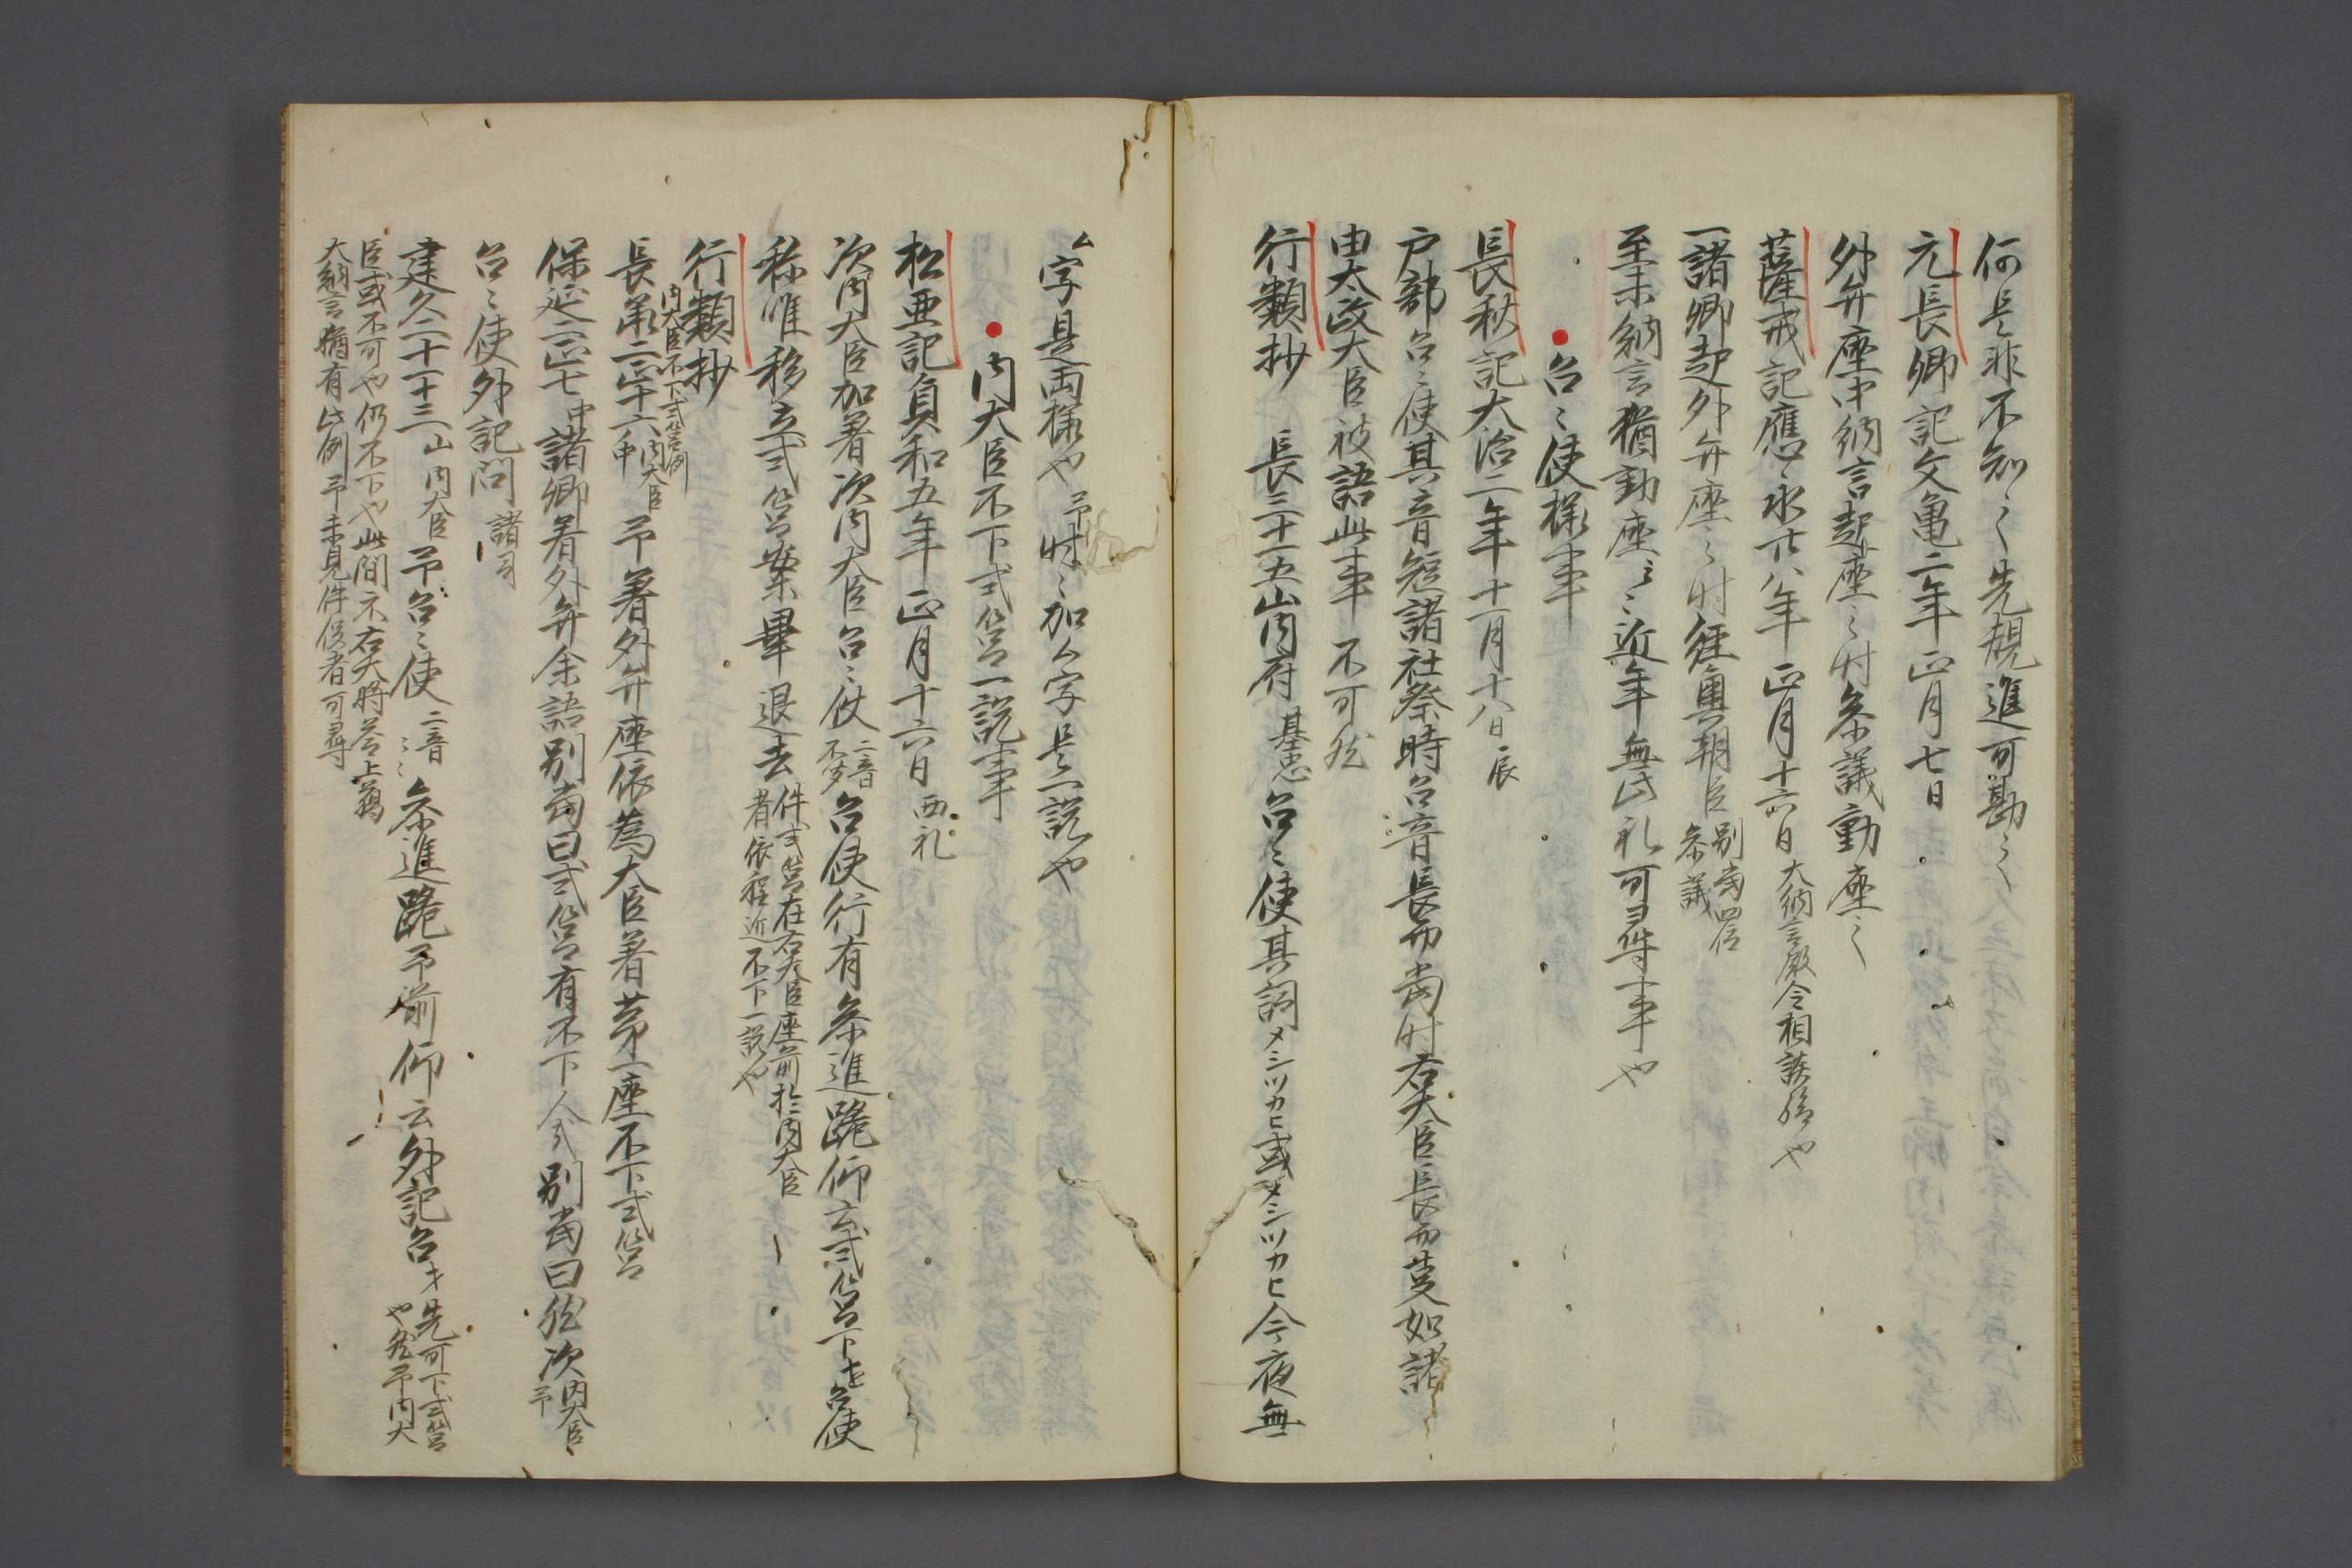 何是非不知々先規進可勘々
元長卿記文亀二年正月七日
外弁座中納言起座々時参議動座々
薩戒記應永廿八年正月十六日大納言殿令相談給や
一諸卿起外弁座々時経輿朝臣別當四位参議
至未納言猶動座々近年無此礼可尋事や
召々使様事
長秋記大治二年十一月十八日辰
戸部召々使其音短諸社祭時召音長而當時右大臣長而甚如諸
由太政大臣被語此事不可然
行類抄 長三十一五山内府基忠召々使其詞メシツカヒ或メシツカヒ今夜無
ム字是両様や予時々加ム字是一説や
内大臣不下式筥一説事
松亜記貞和五年正月十六日西礼
次内大臣加着次内大臣召々使二音召使行有参進跪仰云式筥下せ召使
称唯移立式筥案畢退去件式筥在右大臣座前於内大臣
者依程近不下一説や
行類抄
内大臣不下式筥例
長承二正十六甲内大臣予着外弁座依為大臣着第一座不下式筥
保延二正七中諸卿着外弁余語別當曰式筥有不下人式別當曰然次内大臣予
召々使外記問諸司
建久二十一十三山内大臣予召々使二音参進跪予前仰云外記召才先可下式筥
や然予内大
臣或不可や仍不下や此間示右大将答上﨟
大納言猶有此例予未見件候者可尋